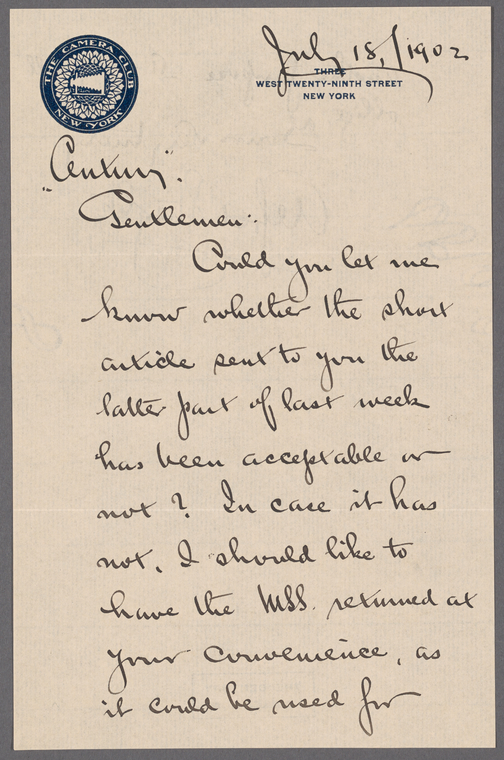 THE CAMERA CLUB
NEW YORK
July 18,/1902
THREE
WEST TWENTY-NINTH STREET
NEW YORK
"Century".
Gentlemen:
Could you let me
know whether the short
article sent to you the
latter part of last week
has been acceptable or
not? In case it has
not, I should like to
have the MSS. returned at
your convenience, as
it could be used for